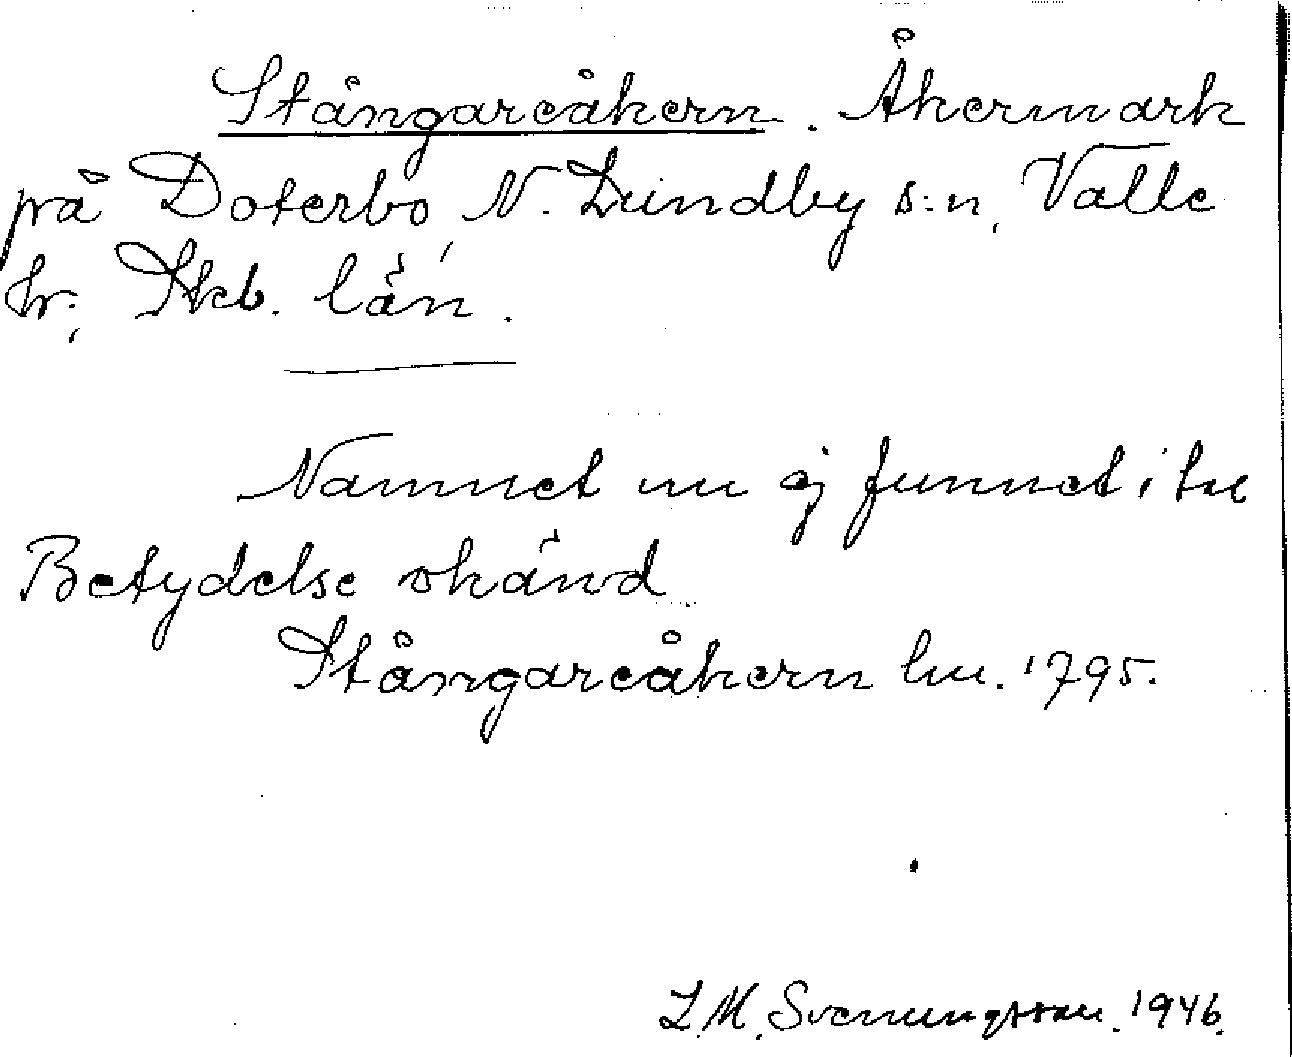 Stångareåkern. Åkermark
på Doterbo, N. Lundby s:n, Valle
hr, Skb. län.
Namnet nu ej funnet i tal
Betydelse okänd
Stångareåkern lm. 1795.
L. M. Svenungsson. 1946.